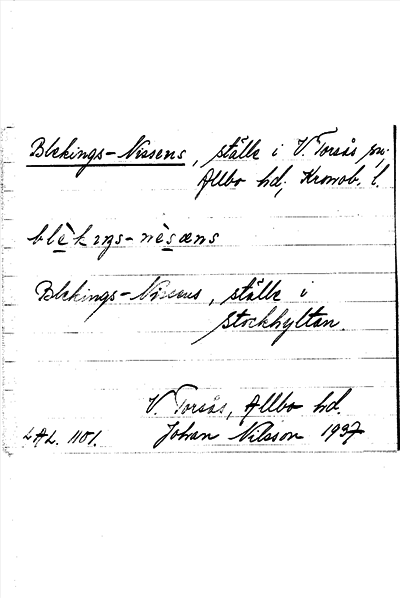 Blekings-Nissens, ställe i V. Torsås sn;
Allbo hd; Kronob. l.
blèkıŋs-nèsæns
Blekings-Nissens, ställe i
Stockhyltan.
V. Torsås, Allbo hd.
LAL. 1101. Johan Nilsson 1937